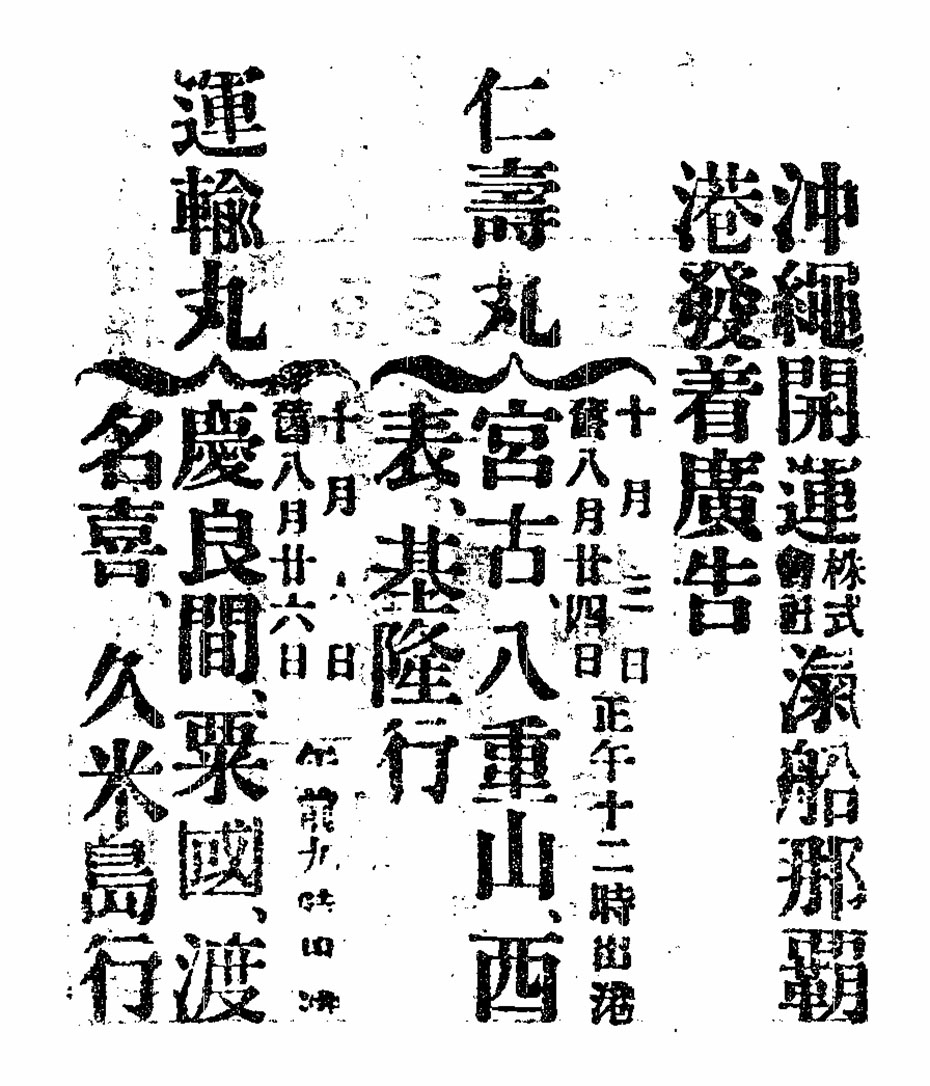 沖繩開運株式會社滊船那覇
港發着廣告
仁壽丸
十月三日正午十二時出港
舊八月廿四日
宮古、八重山、西
表、基隆行
運輸丸
十月 日午前九時出港
舊八月廿六日
慶良間、粟國、渡
名喜、久米島行